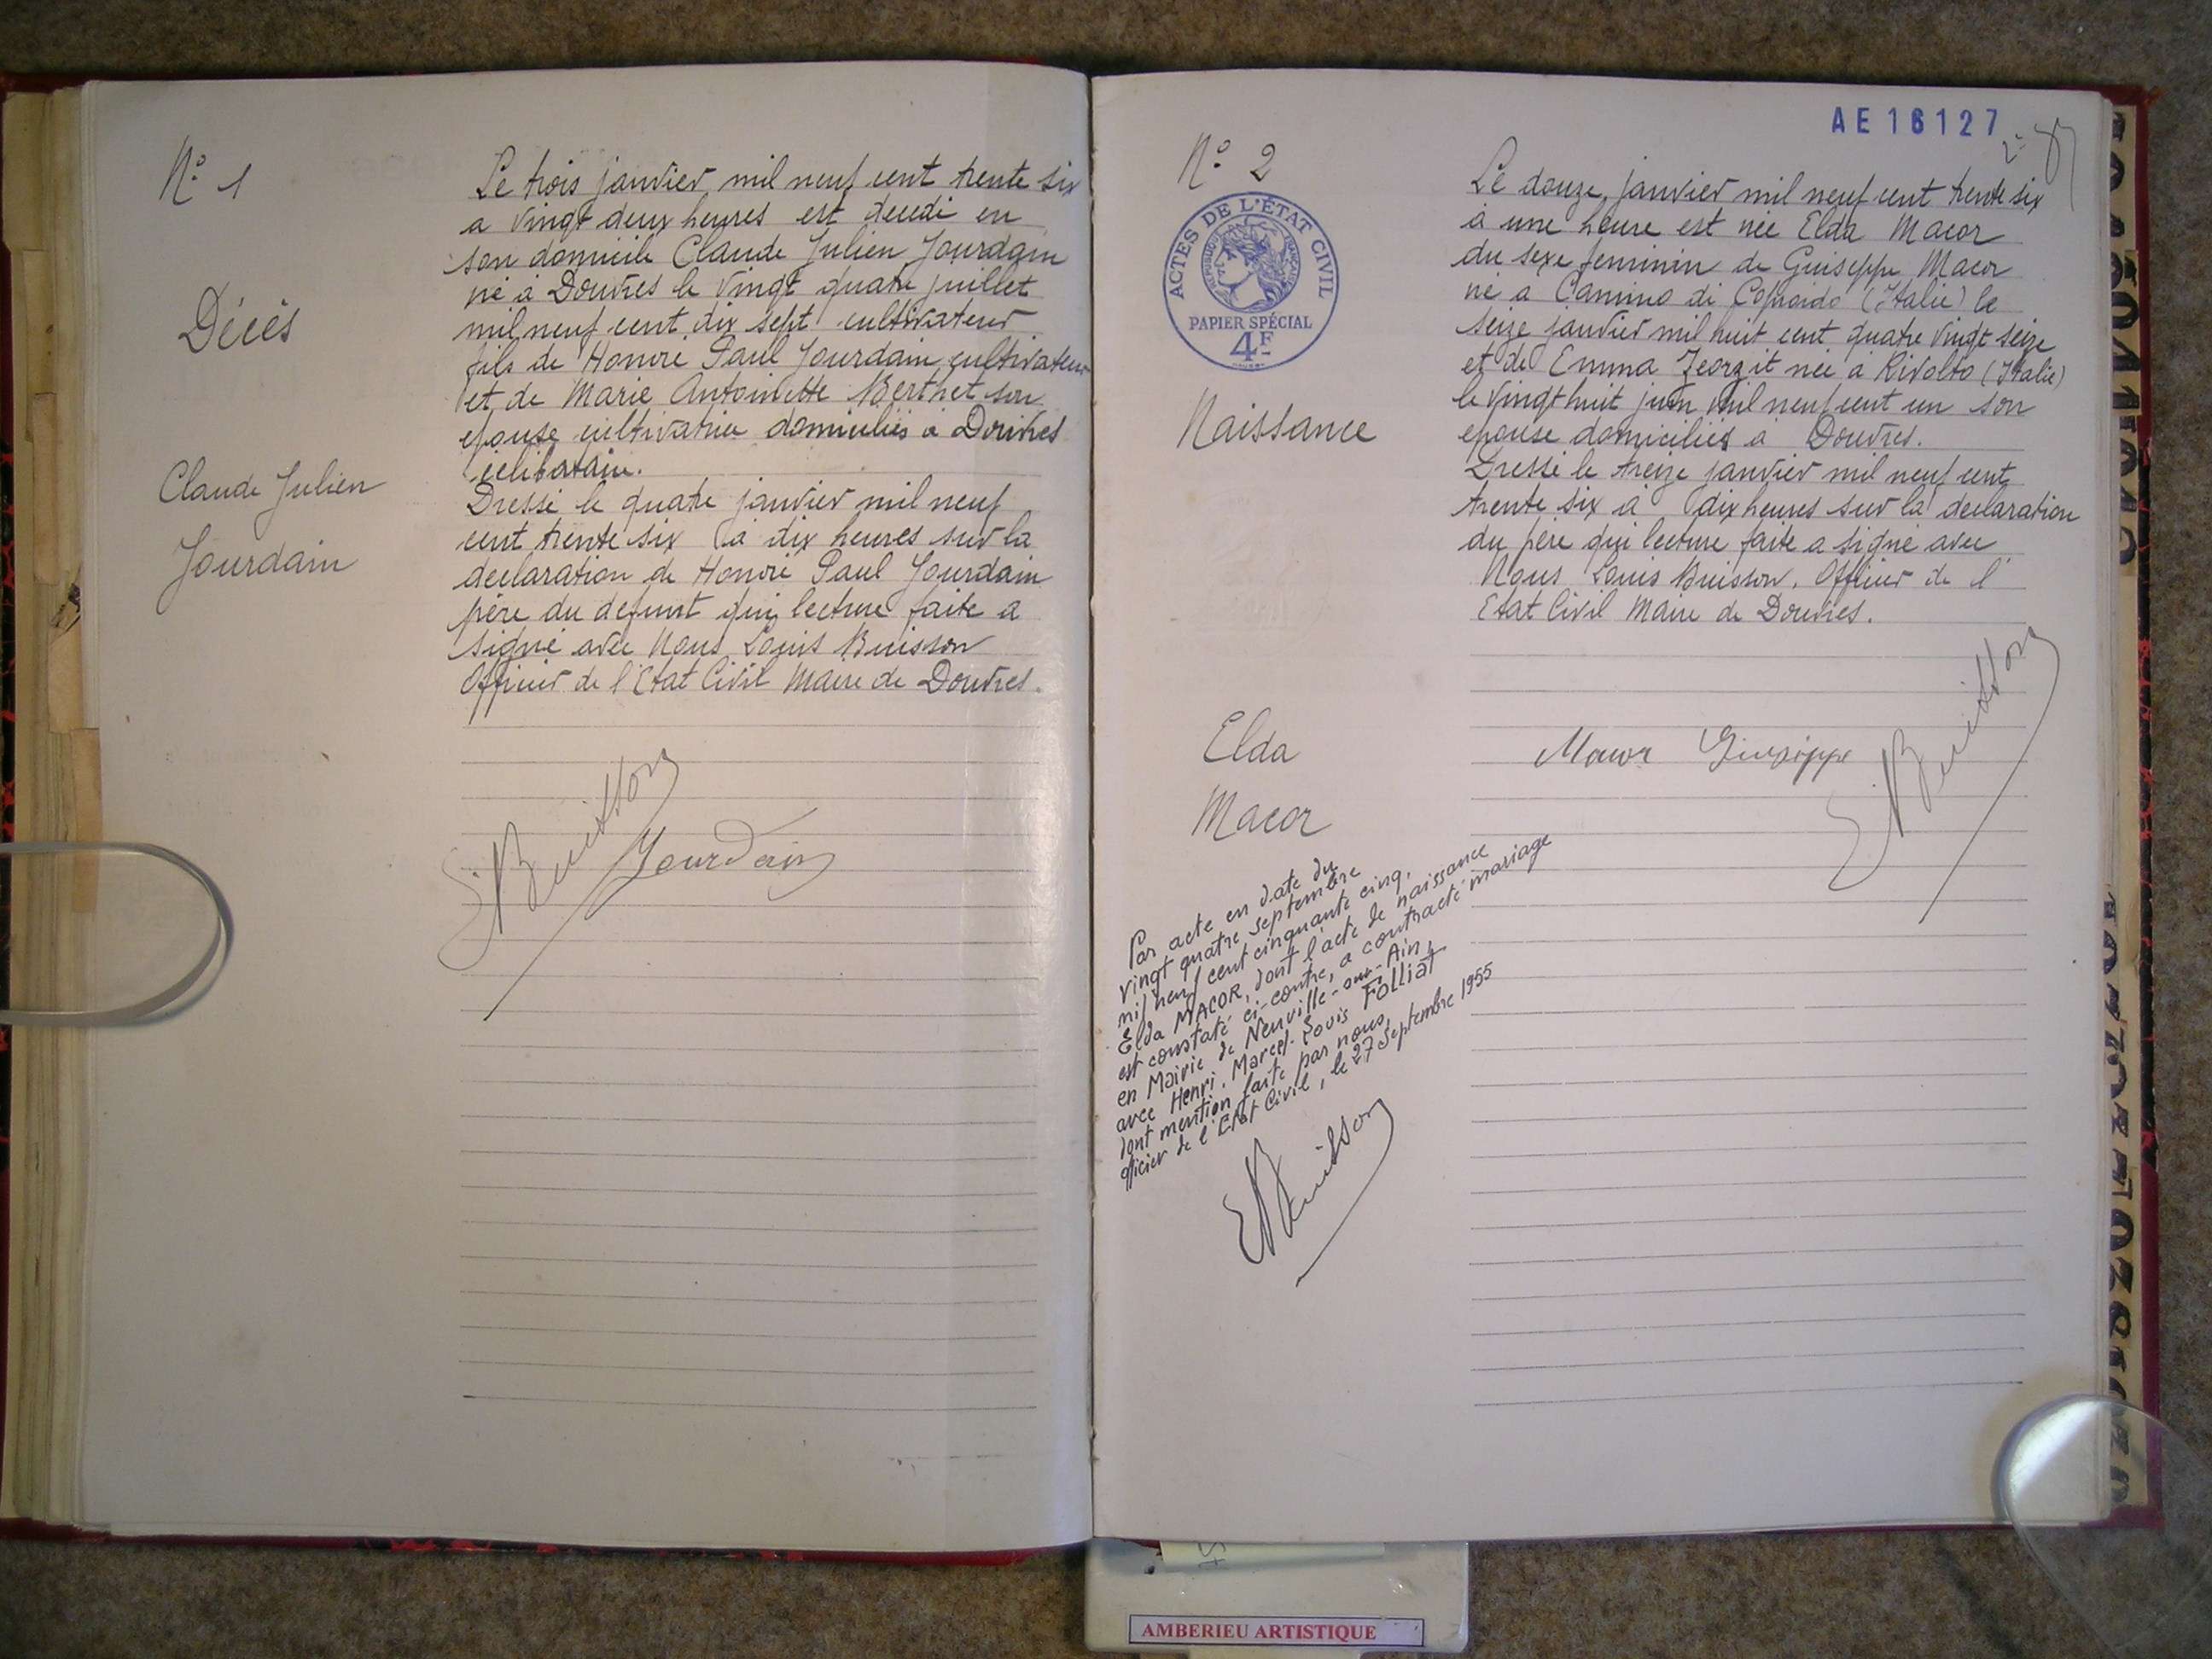 N° 1
Décès
Claude Julien
Jourdain
Le trois janvier mil neuf cent trente six
a vingt deux heures est decedi en
son domicile Claude Julien Jourdain
né à Douvres le vingt quatre juillet
mil neuf cent dix sept cultivateur
fils de Honoré Paul Jourdain cultivateur
et de Marie Antoinette Berthet son
epouse cultivatrice domiciliés à Douvres
célibataire.
Dressé le quatre janvier mil neuf
cent trente six à dix heures sur la
declaration de Honoré Paul Jourdain
père du defunt qui lecture faite a
signé avec Nous Louis Buisson
Officier de l'Etat Civil Maire de Douvres.
Buisson
Jourdain
AE16127
N° 2
ACTES DE L'ÉTAT CIVIL
RÉPUBLIQUE FRANÇAISE
PAPIER SPÉCIAL
4F
Naissance
Elda
Macor
Le douze janvier mil neuf cent trente six
à une heure est née Elda Macor
du sexe feminin de Guiseppe Macor
né a Camino di (Italie) le
seize janvier mil huit cent quatre vingt seize
et de Emma née à Rivolto (Italie)
le vingt huit juin mil neuf cent un son
epouse domiciliés à Douvres.
Dressé le treize janvier mil neuf cent
trente six à dix heures sur la declaration
du père qui lecture faite a signé avec
Nous Louis Buisson. Officier de l'
Etat Civil Maire de Douvres.
Macor Giuseppe
Buisson
Par acte en date du
vingt quatre septembre
mil neuf cent cinquante cinq,
Elda MACOR, dont l'acte de naissance
est constaté ci-contre, a contracté mariage
en Mairie de Neuville-sur-Ain,
avec Henri. Marcel. Louis Folliat
dont mention faite par nous,
officier de l'Etat Civil, le 27 Septembre 1955
Buisson
AMBERIEU ARTISTIQUE